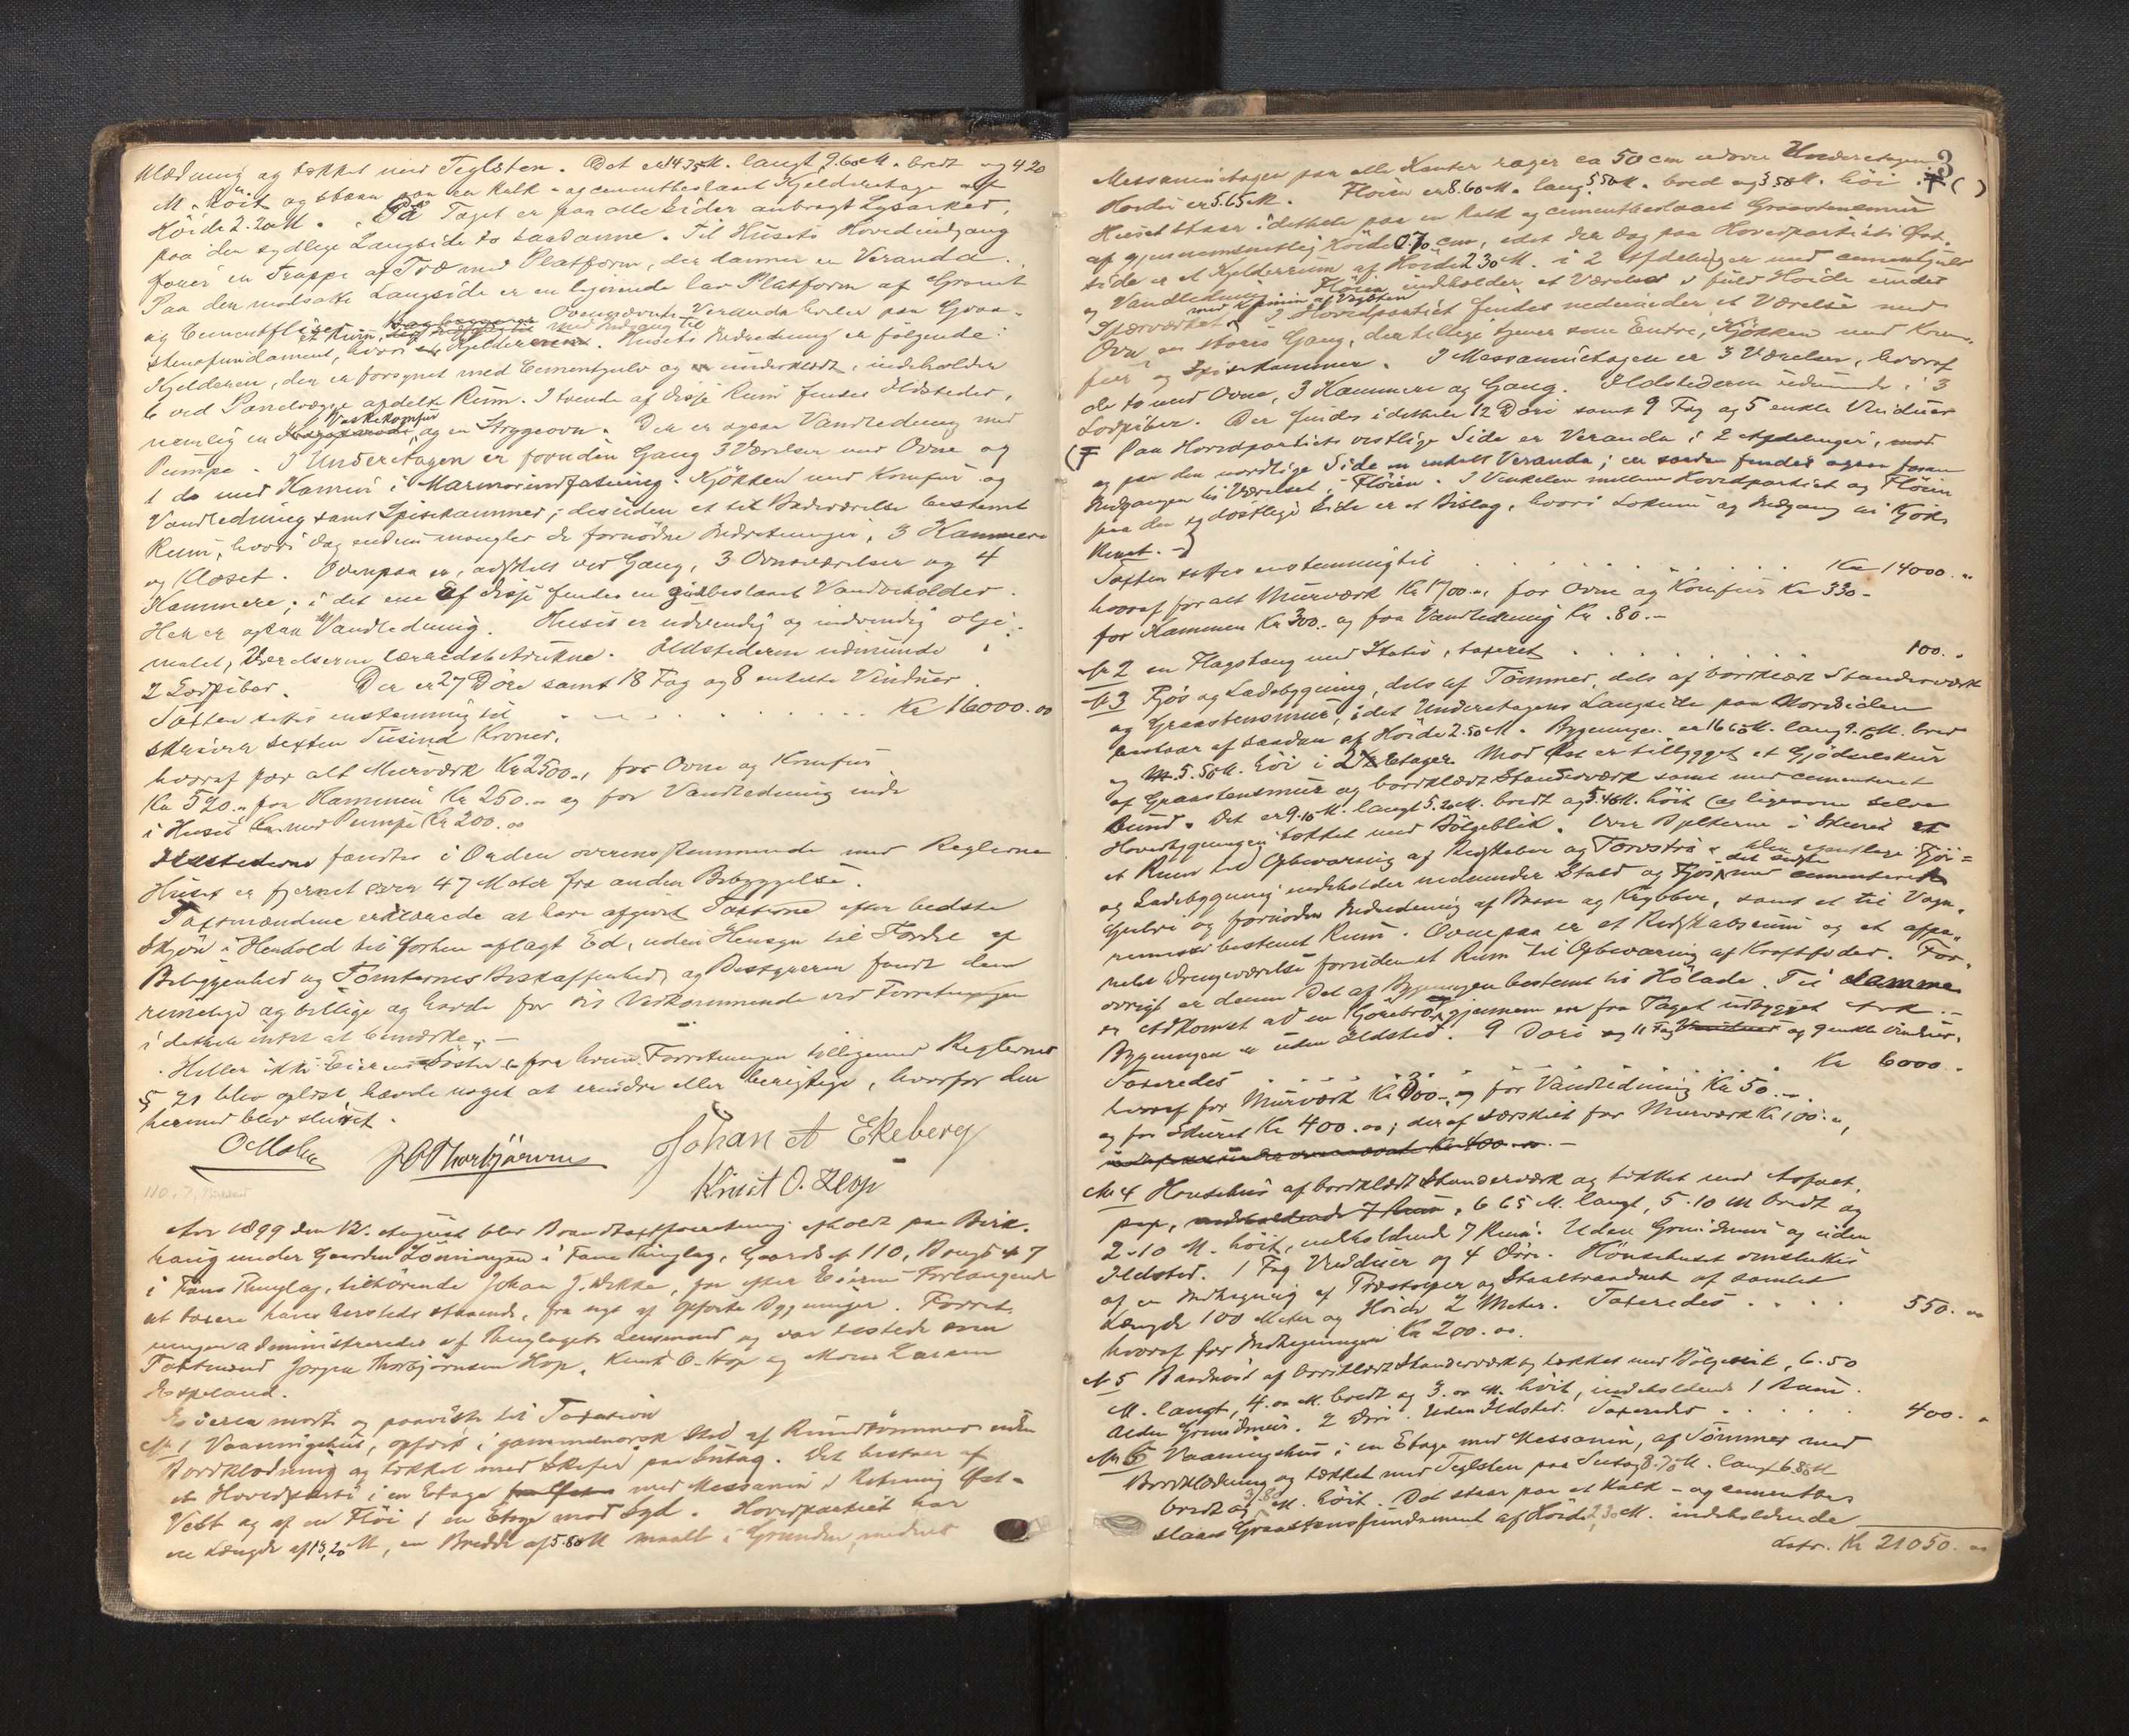 klædning og tækket med Teglsten. Det er 14.35 M. langt 9.60 M. bredt og 4 20
M. höit og staar paa en kalk- og cementbeslaaet Kjelderetage af
Höide 2.20 M. På Taget er paa alle Sider anbragt Lysarker,
paa den sydlige Langside to saadanne. Til Husets Hovedindgang
förer en Trappe af Træ med Platform, der danner en Veranda.
Paa den modsatte Langside er en liggende lav Platform af Granit
og Cementfliser. Ovennævnte Veranda hviler paa Graa-
stensfundament, hvori et Rum, med Indgang til Kjelderen. Husets Indredning er følgende:
Kjelderen, der er forsynet med Cementgulv og er underklædt, indeholder
6 ved Panelvægge afdelte Rum. I tvende af disse Rum findes Ildsteder,
nemlig en Vaskekomfur og en Strygeovn. Der er ogsaa Vandledning med
Pumpe. I Underetagen er foruden Gang 3 Værelser med Ovne og
1 do med Kamin i Marmorindfatning. Kjökken med Komfur og
Vandledning samt Spisekammer; desuden et til Badeværelse bestemt
Rum, hvori dog endnu mangler de fornödne Indretninger, 3 Kammere
og Kloset. Ovenpaa er, adskilt ved Gang, 3 Ovnsværelser og 4
Kammere; i det ene af disse findes en zinkbeslaaet Vandbeholder.
Her er ogsaa Vandledning. Huset er udvendig og indvendig olje-
malet, Værelserne lærredsbetrukne. Ildstederne udmunde i
2 Lodpiber. Der er 27 Dore samt 18 Fag og 8 enkelte Vinduer.
Taxten sattes enstemmig til Kr 16000.00
skriver Sexten Tusind Kroner,
hvoraf for alt Murværk Kr 2500.-, for Ovne og Komfur
Kr 520.- for Kaminen Kr 250.- og for Vandledning inde
i Huset med Pumpe Kr 200.00
Ildstederne fandtes i Orden overensstemmende med Reglerne
Huset er fjernet over 47 Meter fra anden Bebyggelse.
Taxtmændene erklærede at have afgivet Taxterne efter bedste
Skjön i Henhold til forhen aflagt Ed, uden Hensyn til Fordel af
Beliggenhed og Tomternes Beskaffenhed, og Bestyreren fandt dem
rimelige og billige og havde for sit Vedkommende ved Forretningen
i dethele intet at bemærke.-
Heller ikke Eierens Söster for hvem Forretningen tilligemed Reglernes
§ 21 blev oplæst, havde noget at erindre eller berigtige, hvorfor den
hermed blev sluttet.
OMohn JThorbjörnsen Johan A Ekeberg
Knut O. Hop
Aar 1899 den 12. August blev Brandtaxtforretning afholdt paa Birk-
haug under Gaarden Lönningen i Fane Thinglag, Gaards № 110, Brugs № 7
i Fane Thinglag, tilhörende Johan J. Wikke, for efter Eierens Forlangende
at taxere hans hersteds staaende, fra nyt af opförte Bygninger. Forret-
ningen administreredes af Thinglagets Lensmand og var tilstede som
Taxtmænd Jørgen Thorbjörnsen Hop, Knut O. Hop og Mons Larsen
Espeland.
Eieren mödte og paaviste til Taxation
№ 1 Vaaningshus, opfört i gammelnorsk Stil af Rundtömmer uden
Bordklædning og tækket med Skifer paa Sutag. Det bestaar af
et Hovedparti i en Etage med Messanin i Retning Öst-
Vest og af en Flöi i en Etage mod Syd. Hovedpartiet har
en Længde af 13,20 M, en Bredde af 5.80 M maalt i Grunden, medens
3
Messaninetagen paa alle Kanter rager ca 50 cm udover Underetagen.
Hoiden er 5.65 M. Floien er 8.60 M. lang 5.50 M. bred og 3.50 M. höi.
Huset staar i dethele paa en kalk og cementbeslaaet Graastensmur
af gjennemsnitlig Höide 0.70 cm, idet der dog paa Hovedpartiets Öst-
side er et Kjelderrum af Höide 2.30 M. i 2 Afdelinger med cementgulv
og Vandledning. Flöien indholder et Værelse i fuld Hoide under
Sperværket med Kamin af Teglsten. I Hovedpartiet findes nedenunder et Værelse med
Ovn, en større Gang, der tillige tjener som Entre, Kjökken med Kom-
fur og Spisekammer. I Messaninetagen er 3 Værelser, hvoraf
de to med Ovne, 3 Kammere og Gang. Ildstederne udmunde i 3
Lodpiber. Der findes i dethele 12 Dore samt 9 Fag og 5 enkle Vinduer
Paa Hovedpartiets vestlige Side er Veranda i 2 Afdelinger, mod
og paa den nordlige Side en enkelt Veranda; en saadan findes ogsaa foran
Indgangen til Værelset i Flöien. I Vinkelen mellem Hovedpartiet og Flöien
paa den sydöstlige Side er et Bislag, hvori Lokum og Indgang til Kjök-
kenet.
Taxten sattes enstemmig til Kr 14000.-
hvoraf for alt Murværk Kr 1700.-, for Ovne og Komfur Kr 330.-
for Kaminen Kr 300.- og for Vandledning Kr. 80.-
№ 2 en Flagstang med Stativ, taxeret 100.-
№ 3 Fjös og Ladebygning, dels af Tömmer, dels af bordklædt Standerværk
og Graastensmur, idet Underetagens Langside paa Nordsiden
bestaar af saadan af Höide 2.50 M. Bygningen er 16.60 M. lang 9.10 M. bred
og 5.50 M. höi i 2 Etager. Mod Öst er tilbygget et Gjödselskur
af Graastensmur og bordklædt Standerværk samt med cementeret
Bund. Det er 9.10 M. langt 5.20 M. bredt og 5.40 M. höit (og ligesom selve
Hovedbygningen tækket med Bölgeblik. Over Bjelkerne i Skuret er
et Rum til Opbevaring af Redskaber og Torvströ. Den egentlige Fjös-
og Ladebygning indeholder nedenunder Stald og Fjös, det sidste med cementeret
Gulv og fornöden Indredning af Baase og Krybber, samt et til Vogn-
remisse bestemt Rum. Ovenpaa er et Redskabsrum og et afpa-
nelet Drengeværelse foruden et Rum til Opbevaring af Kraftfoder. For-
övrigt er denne Del af Bygningen bestemt til Hölade. Til Samme
er Adkomst ad en Görebro, gjennem en fra Taget udbygget Ark.-
Bygningen er uden Ildsted. 9 Dore og 11 Fag og 9 enkle Vinduer.
Taxeredes Kr 6000.-
hvoraf for Murværk Kr 300.- og for Vandledning Kr 50.-
og for Skuret Kr 400.00; deraf særskilt for Murværk Kr 100.-,
№ 4 Hönsehus af bordklædt Standerværk og tækket med Asfalt-
pap, 6.65 M. langt, 5.10 M bredt og
2.10 M. höit, indholdende 7 Rum. Uden Grundmur og uden
Ildsted. 1 Fag Vinduer og 4 Döre. Hönsehuset omsluttes
af en Indhegning af Træstolper og Staaltraadnet af samlet
Længde 100 Meter og Hoide 2 Meter. Taxeredes 550.-
hvoraf for Indhegningen Kr 200.00.
№ 5 Baadnöst af bordklædt Standerværk og tækket med Bölgeblik, 6.50
M. langt, 4.00 M. bredt og 3.00 M. höit, indeholdende 1 Rum.
Uden Grundmur. 2 Döre. Uden Ildsted. Taxeredes 400.-
№ 6 Vaaningshus i en Etage med Messanin, af Tömmer med
Bordklædning og tækket med Teglsten paa Sutag 8.70 M. langt 6.80 M
bredt og 3.80 M. höit. Det staar paa et kalk- og cementbe-
slaaet Graastensfundament af Höide 2,30 M. indeholdende
Latr. Kr 21050.-